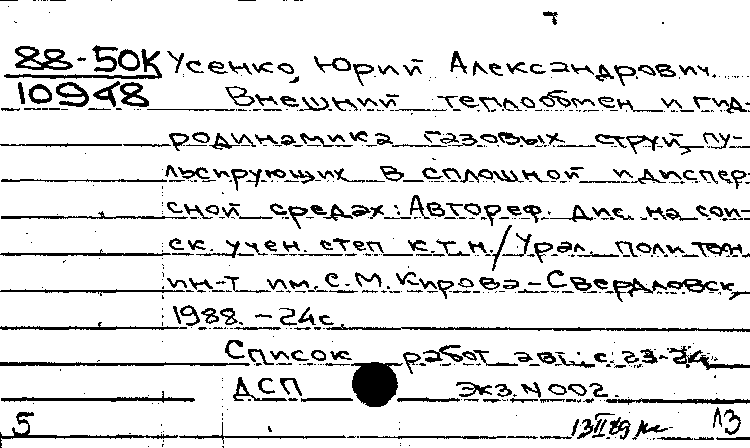 88-50К Усенко, Юрий Александрович.
10948 Внешний теплообмен и гид
родинамика газовых струй, пу-
льсирующих в сплошной и диспер
сной средах: Автореф. дис. на сои-
ск. учен. степ к.т.н./Урал. политехн
ин-т им. С.М. Кирова - Свердловск,
1988. - 24с.
Список работ авт.: с. 23-24
ДСП Экз. N 002.
5 13 II 89 13